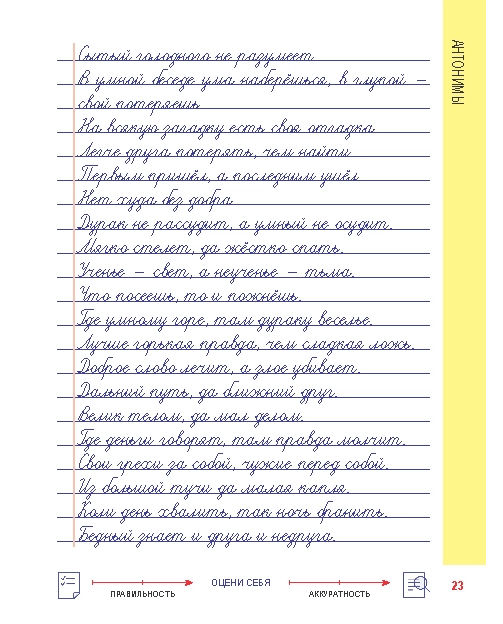 АНТОНИМЫ
Сытый голодного не разумеет
В умной беседе ума наберёшься, в глупой –
свой потеряешь
На всякую загадку есть своя отгадка
Легче друга потерять, чем найти
Первым пришёл, а последним ушёл
Нет худа без добра
Дурак не рассудит, а умный не осудит.
Мягко стелет, да жёстко спать.
Ученье – свет, а неученье – тьма.
Что посеешь, то и пожнёшь.
Где умному горе, там дураку веселье.
Лучше горькая правда, чем сладкая ложь.
Доброе слово лечит, а злое убивает.
Дальний путь, да ближний друг.
Велик телом, да мал делом.
Где деньги говорят, там правда молчит.
Свои грехи за собой, чужие перед собой.
Из большой тучи да малая капля.
Коли день хвалить, так ночь бранить.
Бедный знает и друга и недруга.
ОЦЕНИ СЕБЯ
ПРАВИЛЬНОСТЬ
АККУРАТНОСТЬ
23